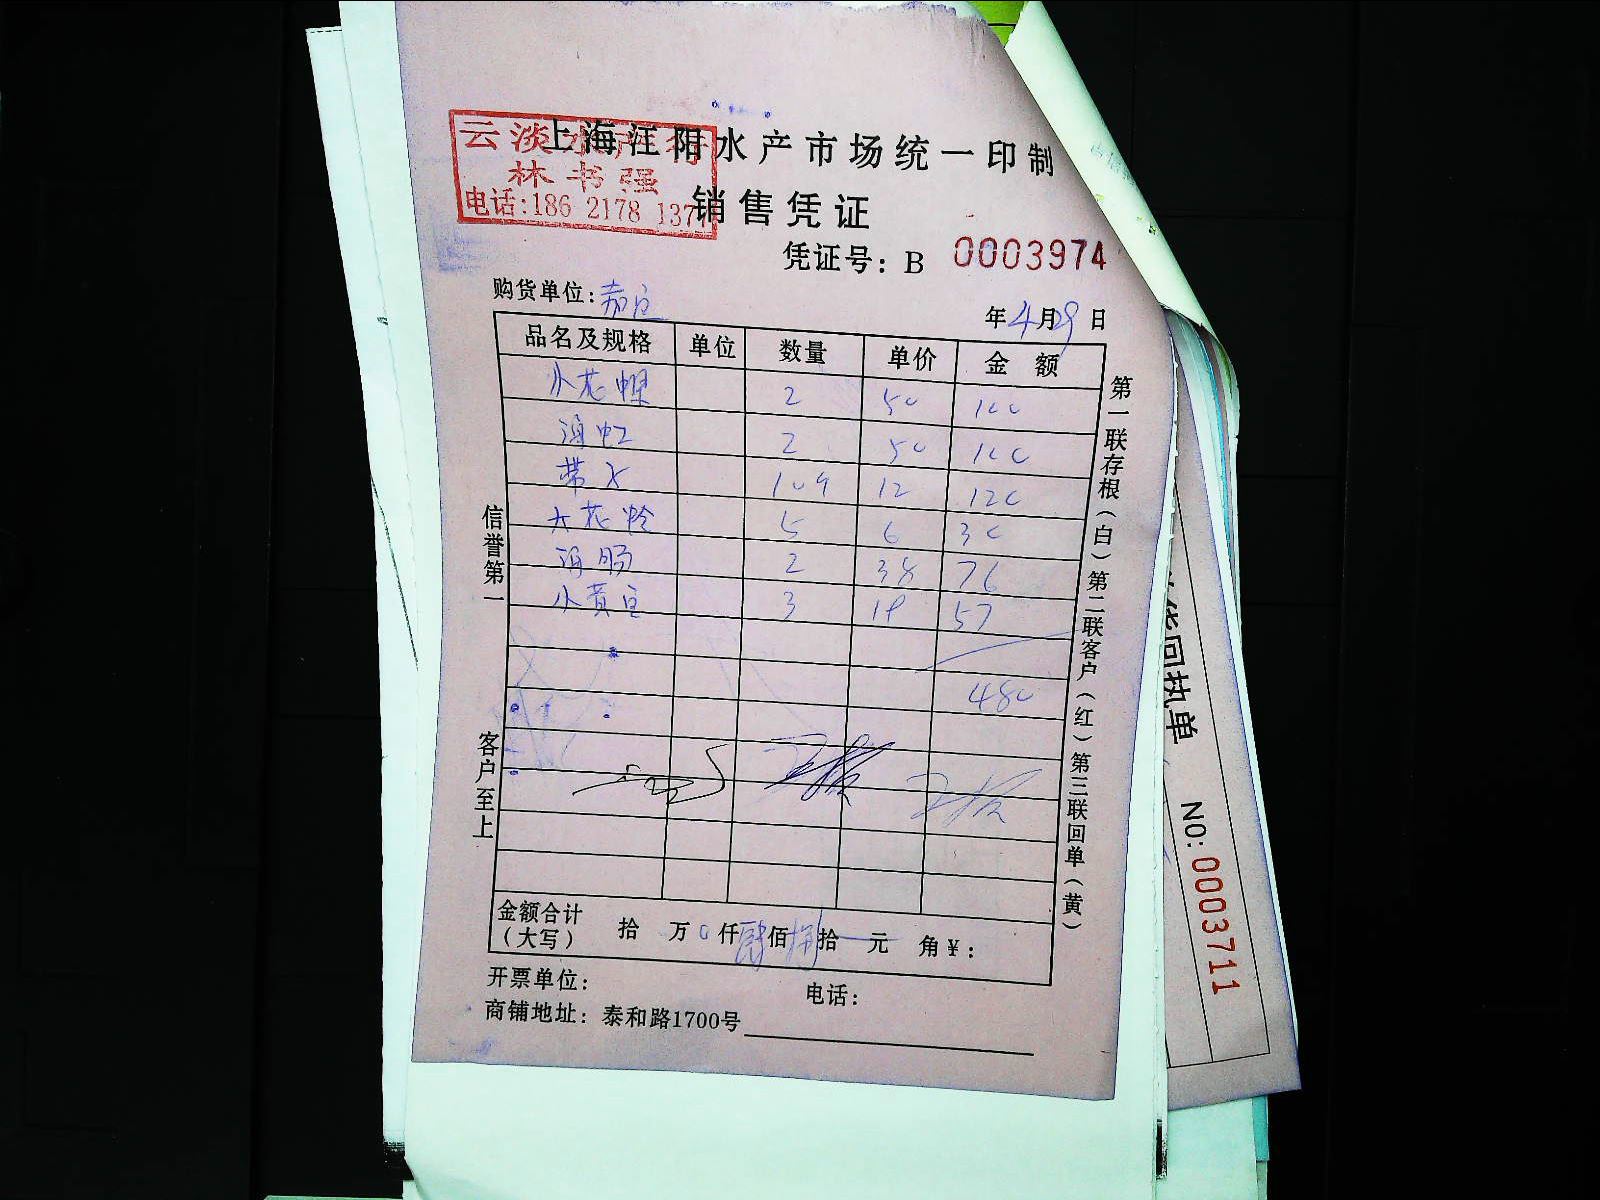 上海江阳水产市场统一印制
云淡水产行
林书强
电话:186 2178 137
销售凭证
凭证号: B 0003974
购货单位:
年4月29日
品名及规格 单位 数量 单价 金额
小花 2 50 100
海虹 2 50 100
带 12 120
大花 5 6 30
海肠 2 38 76
小黄 3 19 57
480
金额合计（大写） 拾 万 0 仟 肆 佰 捌 拾 元 角 ¥:
开票单位: 电话:
商铺地址: 泰和路1700号
信誉第一
客户至上
第一联存根（白）第二联客户（红）第三联回单（黄）
回执单
NO: 0003711